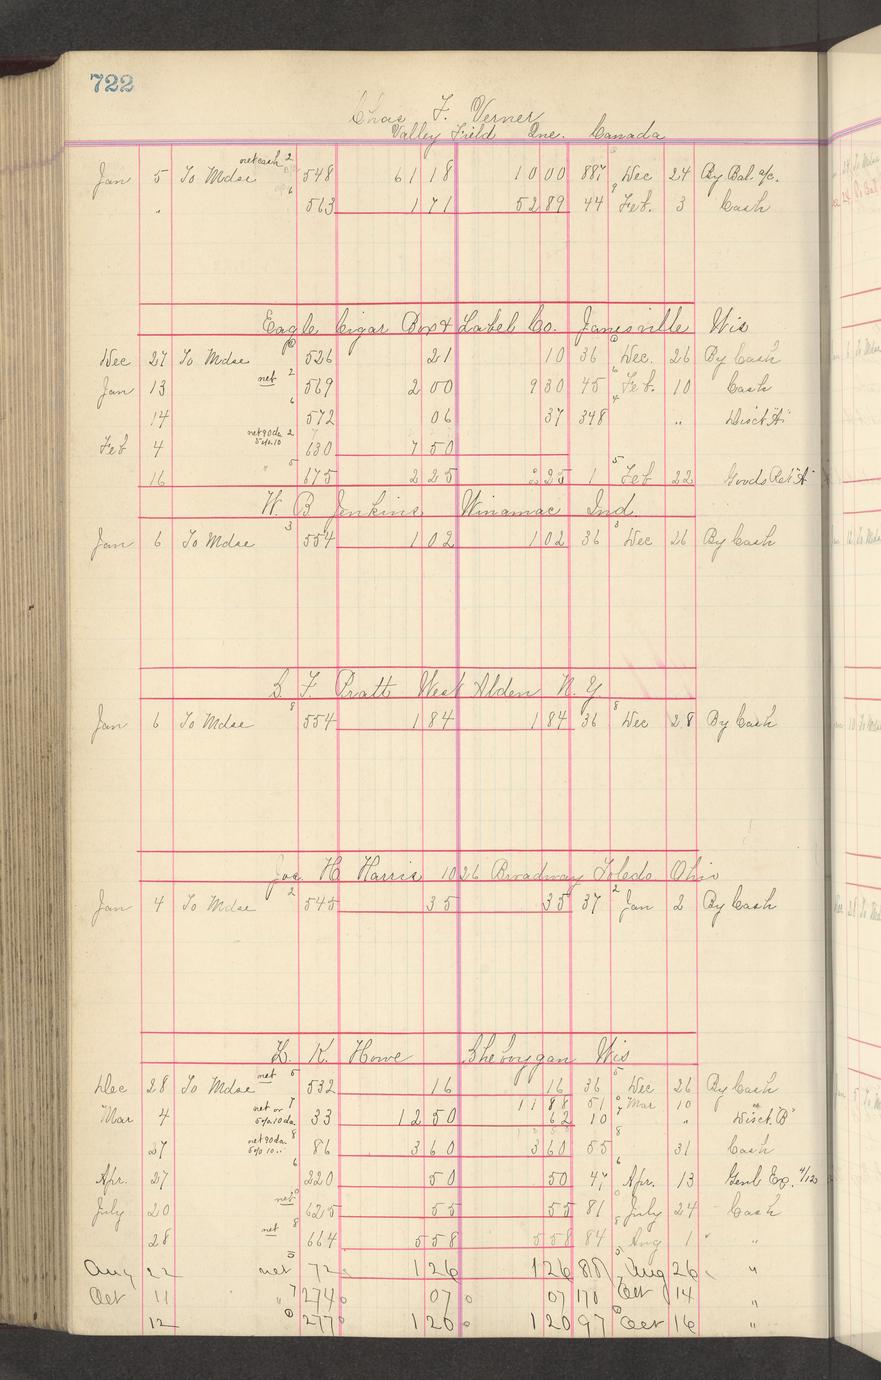 722
Chas F. Verner
Valley Field Que. Canada
Jan 5 To Mdse net cash 2 548 61 18 10 00 887 Dec 24 By Bal. a/c.
" 6 563 1 71 52 89 44 9 Feb. 3 Cash
Eagle Cigar Box & Label Co. Janesville Wis
Dec 27 To Mdse 526 21 10 36 Dec. 26 By Cash
Jan 13 net 2 569 2 00 9 30 45 6 Feb. 10 Cash
14 6 572 06 37 348 4 " Disct "A"
Feb 4 net 90 da. 2 5% 10 630 7 50
16 " 5 675 2 25 2 25 1 5 Feb 22 Goods Ret "A"
W. B Jenkins Winamac Ind.
Jan 6 To Mdse 3 554 1 02 1 02 36 3 Dec 26 By Cash
S. F. Pratt West Alden N. Y.
Jan 6 To Mdse 8 554 1 84 1 84 36 8 Dec 28 By Cash
Jos. H Harris 1026 Broadway Toledo Ohio
Jan 4 To Mdse 2 545 35 35 37 2 Jan 2 By Cash
L. K. Howe Sheboygan Wis
Dec 28 To Mdse net 5 532 16 16 36 5 Dec 26 By Cash
Mar 4 net or 7 5% 10 da. 33 12 50 11 88 51 Mar 10 "
62 10 7 " Disct. "B"
27 net 90 da. 8 5% 10 " 86 3 60 3 60 55 8 31 Cash
Apr. 27 6 220 50 50 47 6 Apr. 13 Genl Exp. 4/120
July 20 net 0 625 55 55 81 0 July 24 Cash
28 net 8 664 5 58 5 58 84 8 Aug 1 "
Aug 22 net 5 72 1 26 1 26 88 Aug 26 "
Oct 11 " 7 274 07 07 170 Oct 14 "
12 277 1 20 1 20 97 Oct 16 "